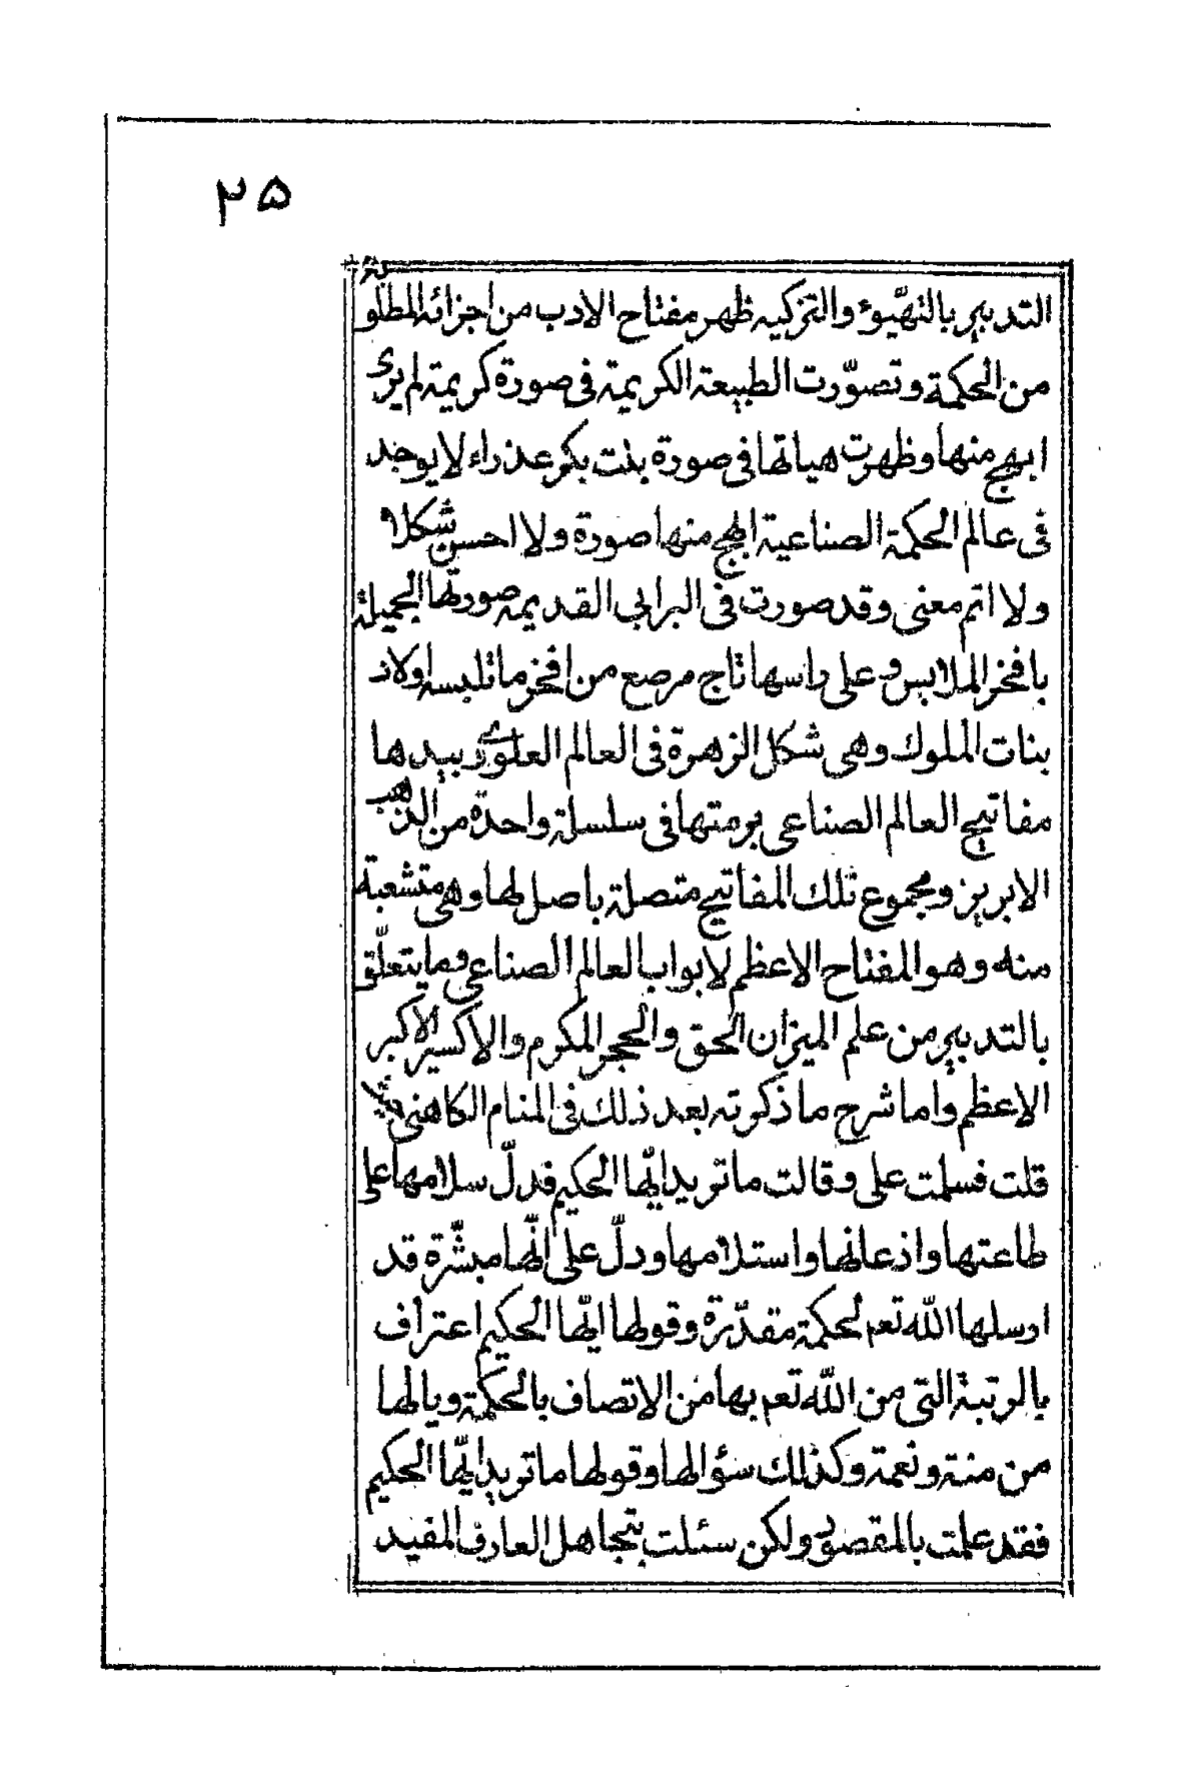 ٢۵
التدبير بالتهيّوء والتزكيه ظهر مفتاح الادب من اجزائه المطلو
من الحكمة وتصوّرت الطبيعة الكريمة فى صورة كريمة لم يرى
ابهج منها وظهرت هياتها فى صورة بنت بكر عذراء لا يوجد
فى عالم الحكمة الصناعية ابهج منها صورة ولا احسن شكلا
ولا اتم معنى وقد صورت فى البرابى القديمه صورتها الجميلة
بافخر الملابس وعلى راسها تاج مرصع من افخر ما تلبسه اولاد
بنات الملوك وهى شكل الزهرة فى العالم العلوى وبيدها
مفاتيح العالم الصناعى برمتها فى سلسلة واحدة من الذهب
الابريز ومجموع تلك المفاتيح متصلة باصل لها وهى متشعبة
منه وهو المفتاح الاعظم لابواب العالم الصناعى وما يتعلّق
بالتدبير من علم الميزان الحق والحجر المكرم والاكسير الاكبر
الاعظم واما شرح ما ذكرته بعد ذلك فى المنام الكاهنى
قلت فسلمت على وقالت ما تريد ايّها الحكيم فدلّ سلامها على
طاعتها واذعانها واستلامها ودلّ على انّها مبشّرة قد
ارسلها الله تعم لحكمة مقدّرة وقولها ايّها الحكيم اعتراف
بالرتبة التى من الله تعم بها من الاتصاف بالحكمة ويالها
من منة ونعمة وكذلك سؤالها وقولها ما تريد ايّها الحكيم
فقد علمت بالمقصود ولكن سئلت بتجاهل العارف المفيد